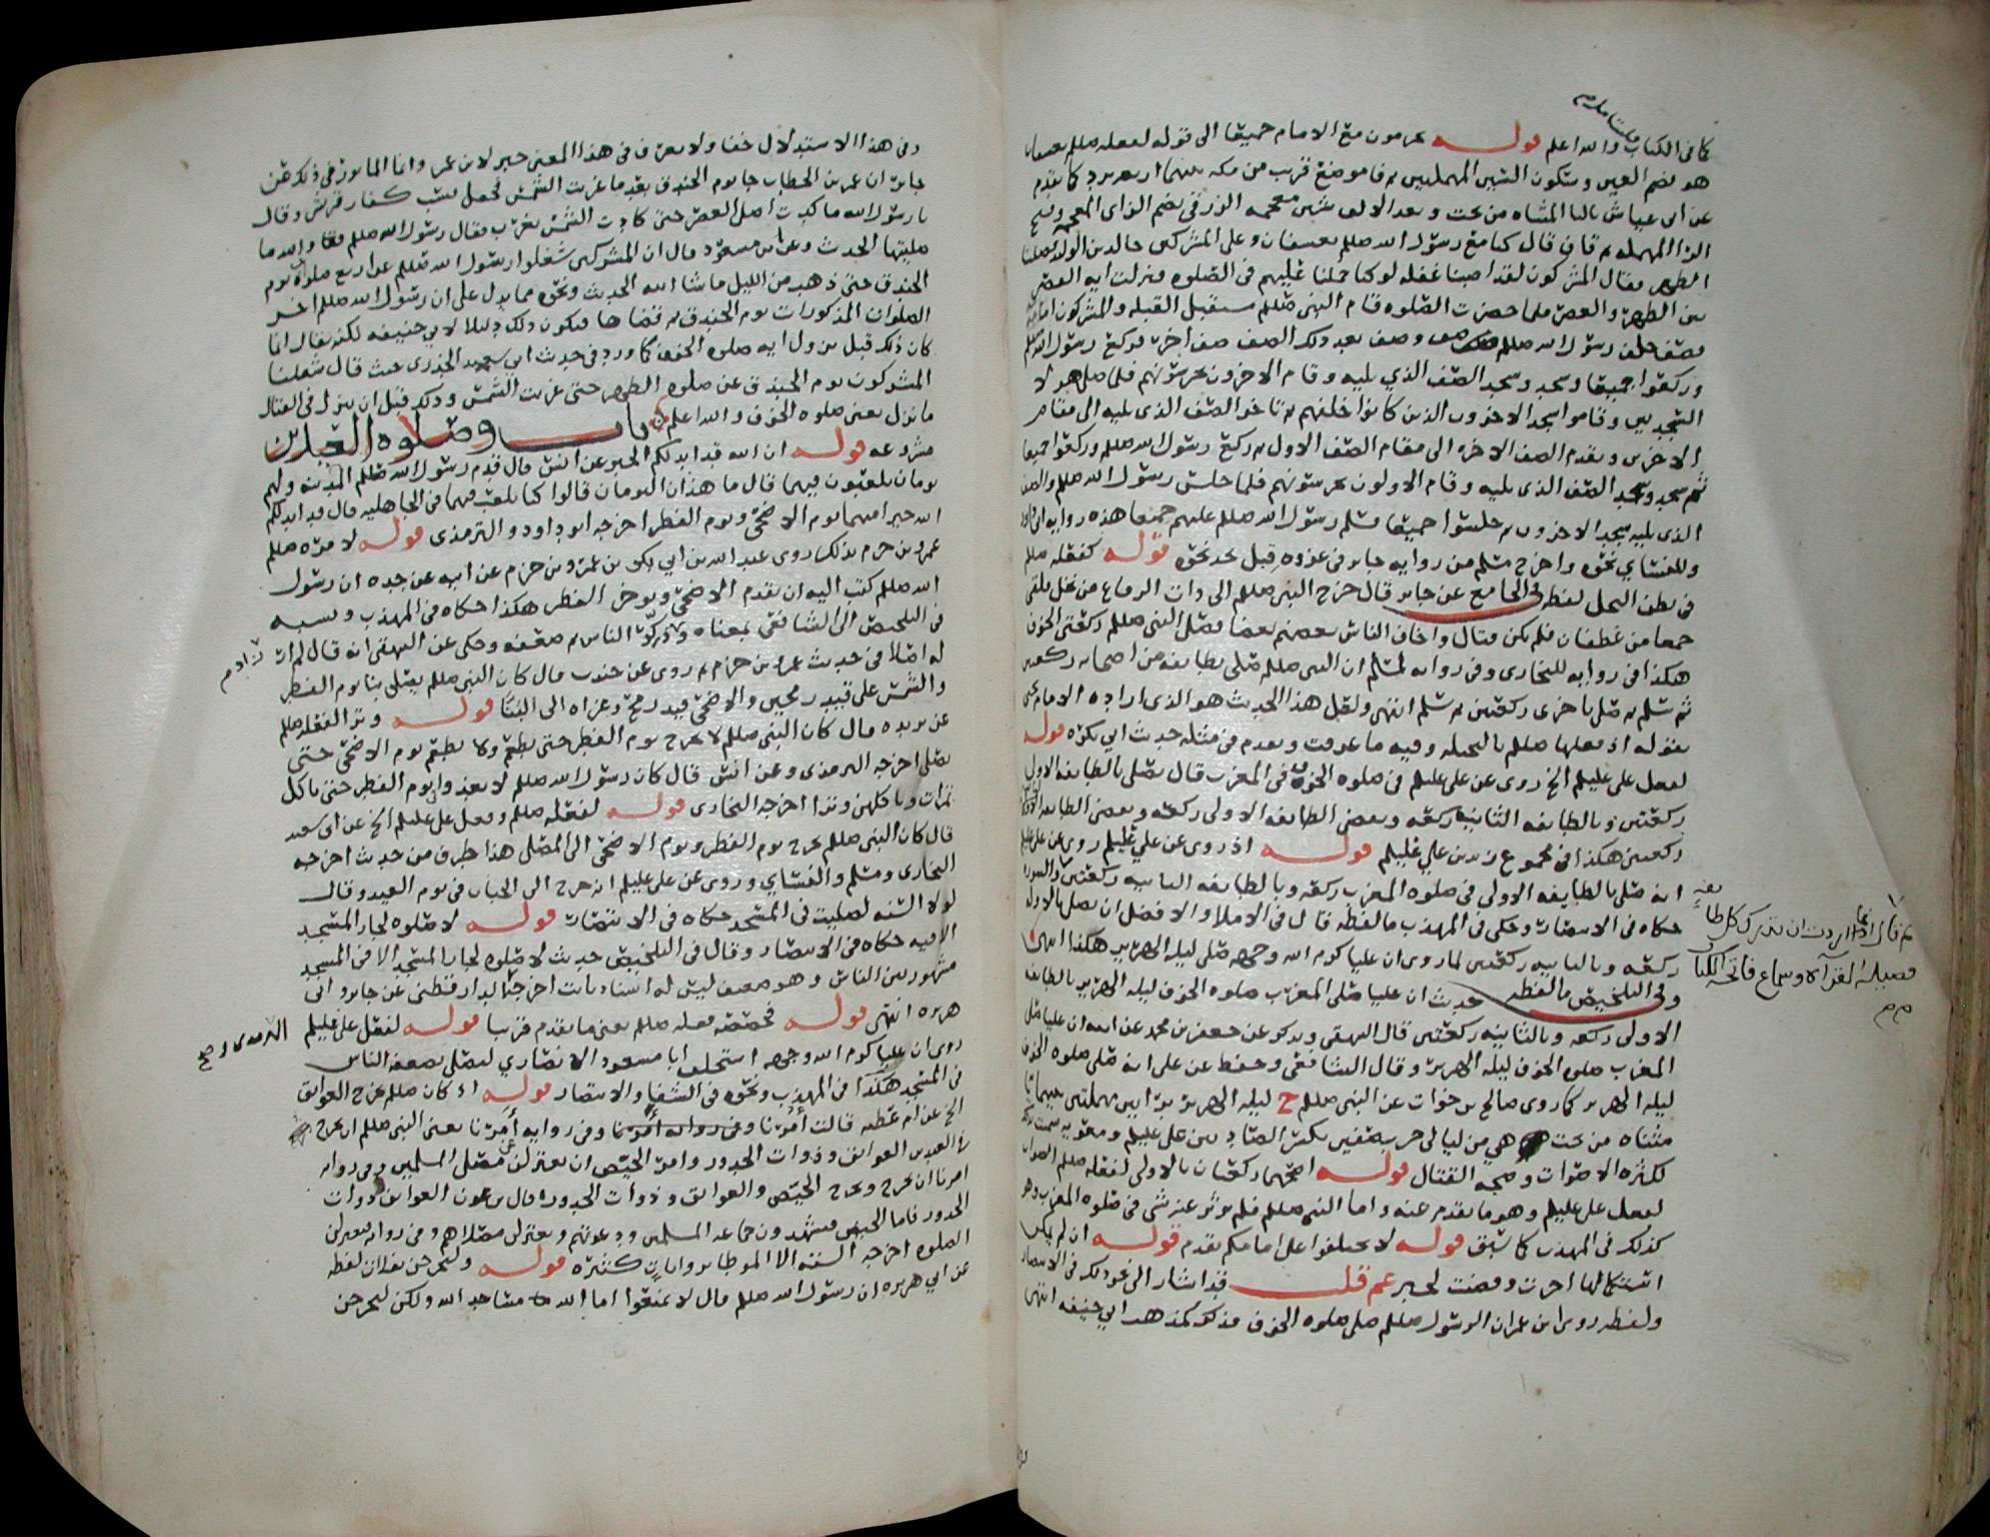 كما في الكتاب والله اعلم قوله يحرمون مع الامام جميعا الى قوله لفعله صللم بعسفان
هو بضم العين وسكون السين المهملتين ثم فا موضع قرب من مكه بينهما اربعه برد كما تقدم
عن ابي عياش باليا المثناه من تحت وبعد الالف شين معجمه الزرقي بضم الزاي المعجمه وفتح
الرا المهمله ثم قاف قال كنا مع رسول الله صللم بعسفان وعلى المشركين خالد بن الوليد فصلينا
الظهر فقال المشركون لقد اصبنا غفله لو كنا حملنا عليهم في الصلوه فنزلت ايه القصر
بين الظهر والعصر فلما حضرت الصلوه قام النبي صللم مستقبل القبله والمشركون امامه
فصف خلف رسول الله صللم صف وصف بعد ذلك الصف صف اخر ثم ركع رسول الله صللم
وركعوا جميعا وسجد وسجد الصف الذي يليه وقام الاخرون يحرسونهم فلما صلى هولا
السجدتين وقاموا سجد الاخرون الذين كانوا خلفهم ثم تاخر الصف الذي يليه الى مقام
الاخرين وتقدم الصف الاخر الى مقام الصف الاول ثم ركع رسول الله صللم وركعوا جميعا
ثم سجد وسجد الصف الذي يليه وقام الاولون يحرسونهم فلما جلس رسول الله صللم والصف
الذي يليه سجد الاخرون ثم جلسوا جميعا فسلم رسول الله صللم عليهم جميعا هذه روايه ابي داود
وللنسائي نحوه واخرج مسلم من روايه جابر في غزوه قبل نجد نحوه قوله كفعله صللم
في بطن النخل لفظه في الجامع عن جابر قال خرج النبي صللم الى ذات الرقاع من نخل فلقي
جمعا من غطفان فلم يكن قتال واخاف الناس بعضهم بعضا فصلى النبي صللم ركعتي الخوف
هكذا في روايه للبخاري وفي روايه لمسلم ان النبي صللم صلى بطايفه من اصحابه ركعتين
ثم سلم ثم صلى باخرى ركعتين ثم سلم انتهى ولعل هذا الحديث هو الذي اراده الامام يحيى
بقوله اذ فعلها صللم بالنخله وفيه ما عرفت وتقدم في مثله حديث ابي بكره قوله
لفعل علي عليلم الخ روي عن علي عليلم في صلوه الخوف في المغرب قال يصلى بالطايفه الاولى
ركعتين وبالطايفه الثانيه ركعه
ركعتين هكذا في مجموع زيد بن علي عليلم قوله اذ روي عن علي عليلم روي عن علي عليلم
انه صلى بالطايفه الاولى في صلوه المغرب ركعه وبالطايفه الثانيه ركعتين
حكاه في الانتصار وحكى في المهذب ما لفظه قال في الاملا والافضل ان يصلي بالاولى
ركعه وبالثانيه ركعتين لما روي ان عليا كرم الله وجهه صلى ليله الهرير هكذا انتهى
وفي التلخيص ما لفظه حديث ان عليا صلى المغرب صلوه الخوف ليله الهرير بالطايفه
الاولى ركعه وبالثانيه ركعتين قال البيهقي ويذكر عن جعفر بن محمد عن ابيه ان عليا صلى
المغرب صلوه الخوف ليله الهرير وقال الشافعي وحفظ عن علي انه صلى صلوه الخوف
ليله الهرير كما روى صالح بن خوات عن النبي صللم ح ليله الهرير برا ايين مهملتين بينهما يا
مثناه من تحت هي من ليالي حرب صفين بكسر الصاد بين علي عليلم ومعويه سميت بذلك
لكثره الاصوات وضجه القتال قوله اصحهما ركعتان بالاولى لفعله صللم
لفعل علي عليلم وهو ما تقدم عنه واما النبي صللم فلم يوثر عنه شي في صلوه المغرب وهو
كذلك في المهذب كما سبق قوله لا تختلفوا على امامكم تقدم قوله ان لم يكن
استكمالها اجزت وقضت لخبر عم قلت قد اشار الى نحو ذلك في الانتصار
ولفظه روى ابن عمر ان الرسول صللم صلى صلوه الخوف فذكر كمذهب ابي حنيفه انتهى
ثم قال اذا اردت ان تدرك كل طايفه
فضيله القراه وسماع فاتحه الكتاب
وفي هذا الاستدلال خفا ولا يعرف في هذا المعنى خبر لابن عمر وانما الماثور في ذلك عن
جابر ان عمر بن الخطاب جا يوم الخندق بعد ما غربت الشمس فجعل يسب كفار قريش وقال
يا رسول الله ما كدت اصلي العصر حتى كادت الشمس تغرب فقال رسول الله صللم والله ما
صليتها الحديث وعن ابن مسعود قال ان المشركين شغلوا رسول الله صللم عن اربع صلوات يوم
الخندق حتى ذهب من الليل ما شا الله الحديث ونحوه مما يدل على ان رسول الله صللم اخر
الصلوات المذكورات يوم الخندق ثم قضاها فيكون ذلك دليلا لابي حنيفه لكنه يقال انما
كان ذلك قبل نزول ايه صلوه الخوف كما ورد في حديث ابي سعيد الخدري حيث قال شغلنا
المشركون يوم الخندق عن صلوه الظهر حتى غربت الشمس وذلك قبل ان ينزل في القتال
ما نزل يعني صلوه الخوف والله اعلم باب وصلوه العيدين
مشروعه قوله ان الله قد ابدلكم الخبر عن انس قال قدم رسول الله صللم المدينه ولهم
يومان يلعبون فيهما قال ما هذان اليومان قالوا كنا نلعب فيهما في الجاهليه قال قد ابدلكم
الله خيرا منهما يوم الاضحى ويوم الفطر اخرجه ابو داود والترمذي قوله لامره صللم
عمرو بن حزم بذلك روى عبد الله بن ابي بكر بن عمرو بن حزم عن ابيه عن جده ان رسول
الله صللم كتب اليه ان يقدم الاضحى ويوخر الفطر هكذا حكاه في المهذب ونسبه
في التلخيص الى الشافعي بمعناه وتذكير الناس ثم ضعفه وحكى عن البيهقي انه قال لم ار
له اصلا في حديث عمرو بن حزام ثم روى عن جندب قال كان النبي صللم يصلي بنا يوم الفطر
والشمس على قيد رمحين والاضحى قيد رمح وعزاه الى البنا قوله وندا لفعله صللم
عن بريده قال كان النبي صللم لا يخرج يوم الفطر حتى يطعم ولا يطعم يوم الاضحى حتى
يصلي اخرجه الترمذي وعن انس قال كان رسول الله صللم لا يغدوا يوم الفطر حتى ياكل
تمرات وياكلهن وترا اخرجه البخاري قوله لفعله صللم وفعل علي عليلم الخ عن ابي سعيد
قال كان النبي صللم يخرج يوم الفطر ويوم الاضحى الى المصلى هذا طرف من حديث اخرجه
البخاري ومسلم والنسائي وروي عن علي عليلم انه خرج الى الجبان في يوم العيد وقال
لولا السنه لصليت في المسجد حكاه في الانتصار قوله لا صلوه لجار المسجد
الا فيه حكاه في الانتصار وقال في التلخيص حديث لا صلوه لجار المسجد الا في المسجد
مشهور بين الناس وهو ضعيف ليس له اسناد ثابت اخرجه الدارقطني عن جابر وابي
هريره انتهى قوله فخصصه فعله صللم يعني ما تقدم قريبا قوله لفعل علي عليلم
روي ان عليا كرم الله وجهه استخلف ابا مسعود الانصاري ليصلي بضعفه الناس
في المسجد هكذا في المهذب ونحوه في الشفا والانتصار قوله اذ كان صللم يخرج العواتق
الخ عن ام عطيه قالت امرنا وفي روايه امرنا يعني النبي صللم ان نخرج
في العيدين العواتق وذوات الخدور وامر الحيض ان يعتزلن مصلى المسلمين وفي روايه
امرنا ان نخرج ونخرج الحيض والعواتق وذوات الخدور قال ابن عون العواتق ذوات
الخدور فاما الحيض فيشهدون جماعه المسلمين ودعوتهم ويعتزلن مصلاهم وفي روايه فيعتزلن
الصلوه اخرجه السته الا الموطا بروايات كثيره قوله وليخرجن تفلات لفظه
عن ابي هريره ان رسول الله صللم قال لا تمنعوا اما الله مساجد الله ولكن ليخرجن